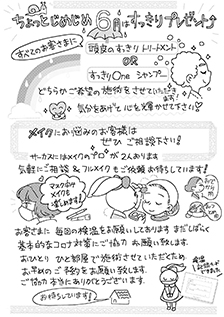 ちょっとじめじめ 6月はすっきりプレゼント♪
すべてのお客さまに
頭皮のすっきりトリートメント
OR
すっきりOne シャンプー
どちらかご希望の施術をさせていただきます!
気分をあげて心を輝かせて下さい
メイクにお悩みのお客様は
ぜひ ご相談下さい!
サーカスにはメイクのプロが 2人おります
気軽にご相談&フルメイクもご依頼お待ちしています!
マスクの中
メイクも
楽しめます!
お客さまに 毎回の検温をお願いしております まだしばらく
基本的なコロナ対策にご協力お願い致します
おひとり ひと部屋で施術させていただくため
お早めのご予約をお願い致します
ご協力本当にありがとうございます
お待ちしています!